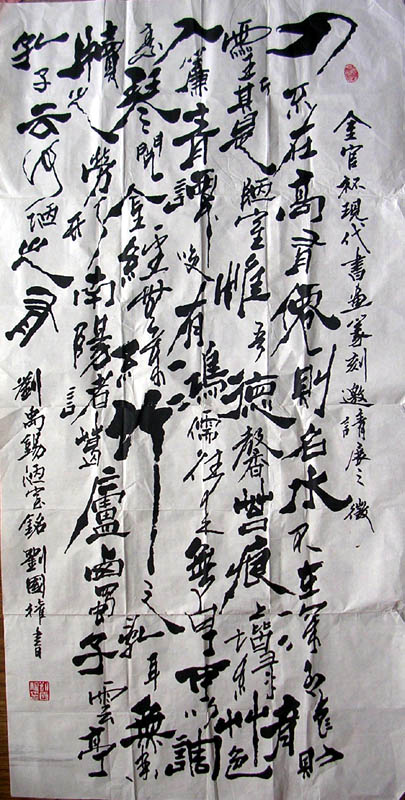 金官杯現代書畫篆刻邀請展之徵
山不在高有僊則名水不在深有龍則
靈斯是陋室惟吾德馨苔痕上堦綠艸色
入簾青談笑有鴻儒往來無白丁可以調
素琴閱金經無絲竹之亂耳無案
牘之勞形南陽諸葛廬西蜀子雲亭
孔子云何陋之有
劉禹錫陋室銘 劉國權書